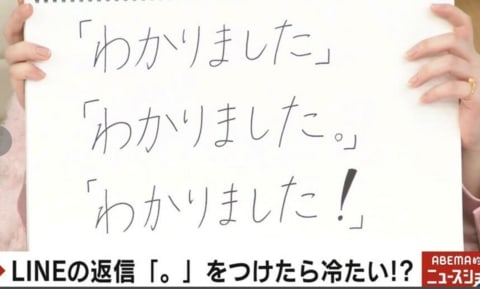 「わかりました」
「わかりました。」
「わかりました!」
LINEの返信「。」をつけたら冷たい!?
ABEMA的
ニュースショ